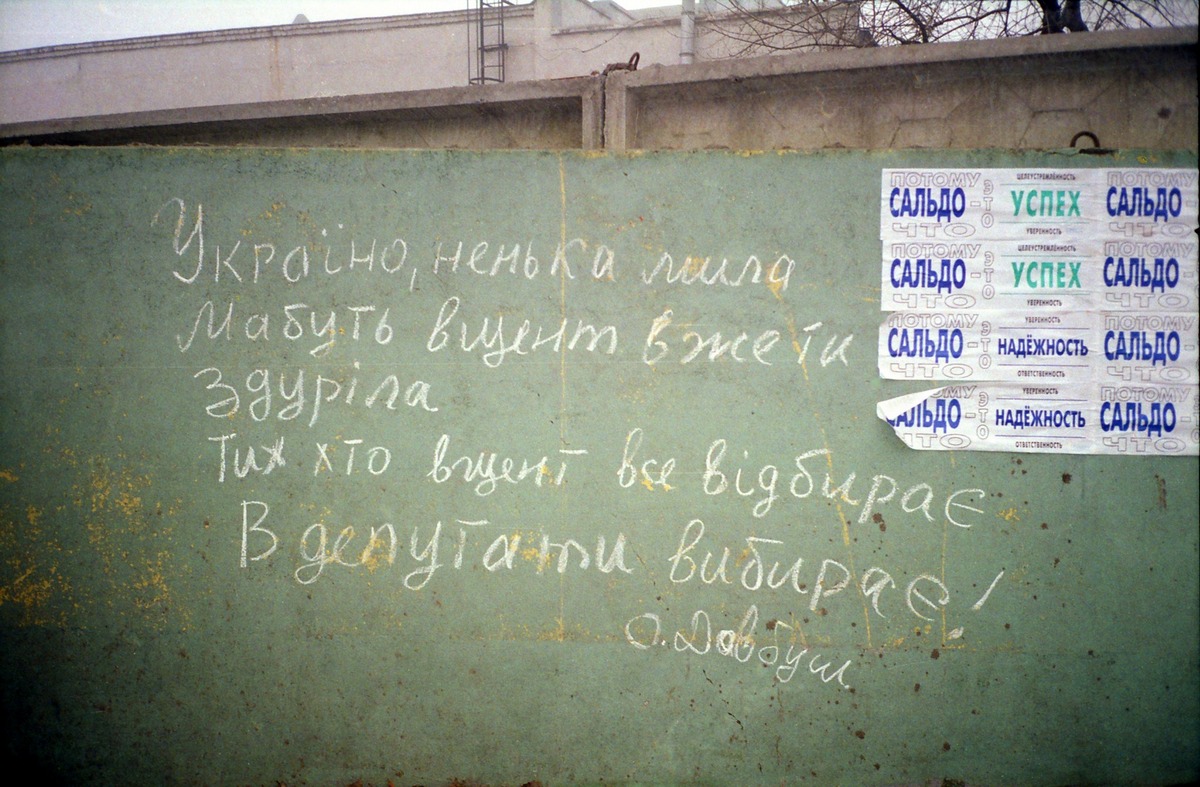 Україно, ненька мила
Мабуть вщент вже ти
Здуріла
Тих хто вщент все відбирає
В депутати вибирає!
О. Довбуш
ПОТОМУ ЦЕЛЕУСТРЕМЛЁННОСТЬ ПОТОМУ
САЛЬДО - ЭТО УСПЕХ САЛЬДО -
ЧТО УВЕРЕННОСТЬ ЧТО
ПОТОМУ ЦЕЛЕУСТРЕМЛЁННОСТЬ ПОТОМУ
САЛЬДО - ЭТО УСПЕХ САЛЬДО -
ЧТО УВЕРЕННОСТЬ ЧТО
ПОТОМУ УВЕРЕННОСТЬ ПОТОМУ
САЛЬДО - ЭТО НАДЁЖНОСТЬ САЛЬДО -
ЧТО ОТВЕТСТВЕННОСТЬ ЧТО
ОМУ УВЕРЕННОСТЬ ПОТОМУ
САЛЬДО - ЭТО НАДЁЖНОСТЬ САЛЬДО -
ЧТО ОТВЕТСТВЕННОСТЬ ЧТО